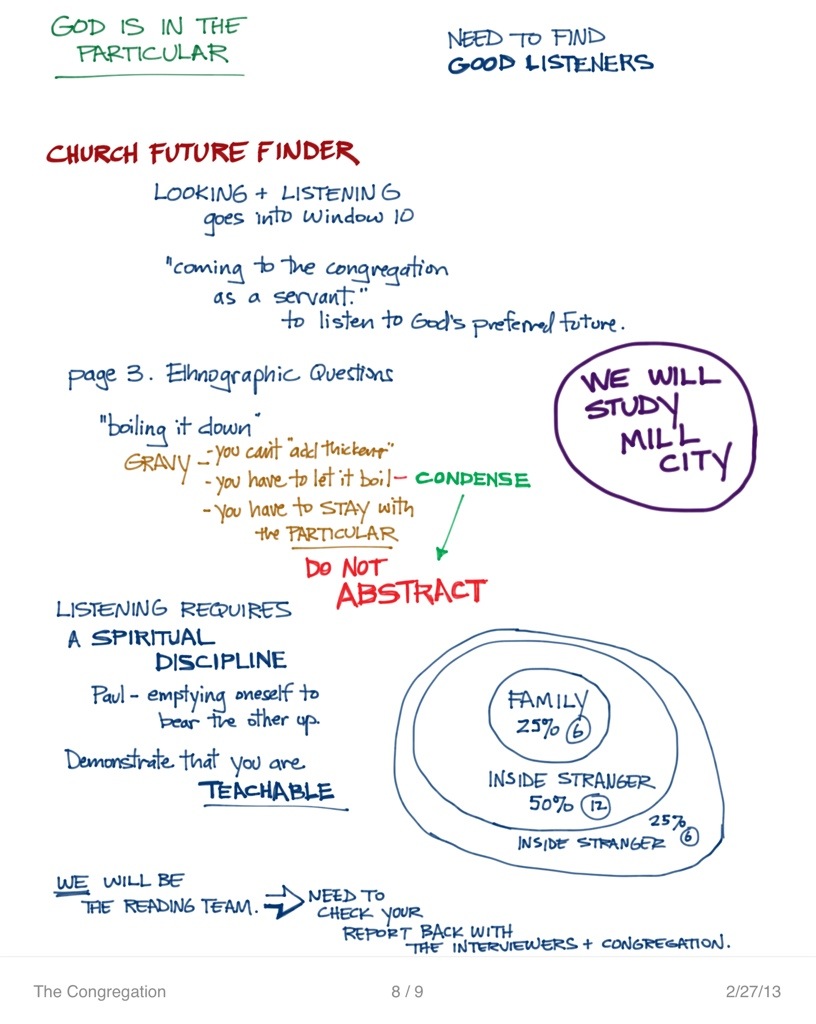 GOD IS IN THE
PARTICULAR
NEED TO FIND
GOOD LISTENERS
CHURCH FUTURE FINDER
LOOKING + LISTENING
goes into Window 10
"coming to the congregation
as a servant."
to listen to God's preferred future.
page 3. Ethnographic Questions
"boiling it down"
GRAVY - you can't "add thickener"
- you have to let it boil - CONDENSE
- you have to STAY with
the PARTICULAR
DO NOT
ABSTRACT
WE WILL
STUDY
MILL
CITY
LISTENING REQUIRES
A SPIRITUAL
DISCIPLINE
Paul - emptying oneself to
bear the other up.
Demonstrate that you are
TEACHABLE
FAMILY
25% 6
INSIDE STRANGER
50% 12
25%
6
INSIDE STRANGER
WE WILL BE
THE READING TEAM.
NEED TO
CHECK YOUR
REPORT BACK WITH
THE INTERVIEWERS + CONGREGATION.
The Congregation 8 / 9 2/27/13